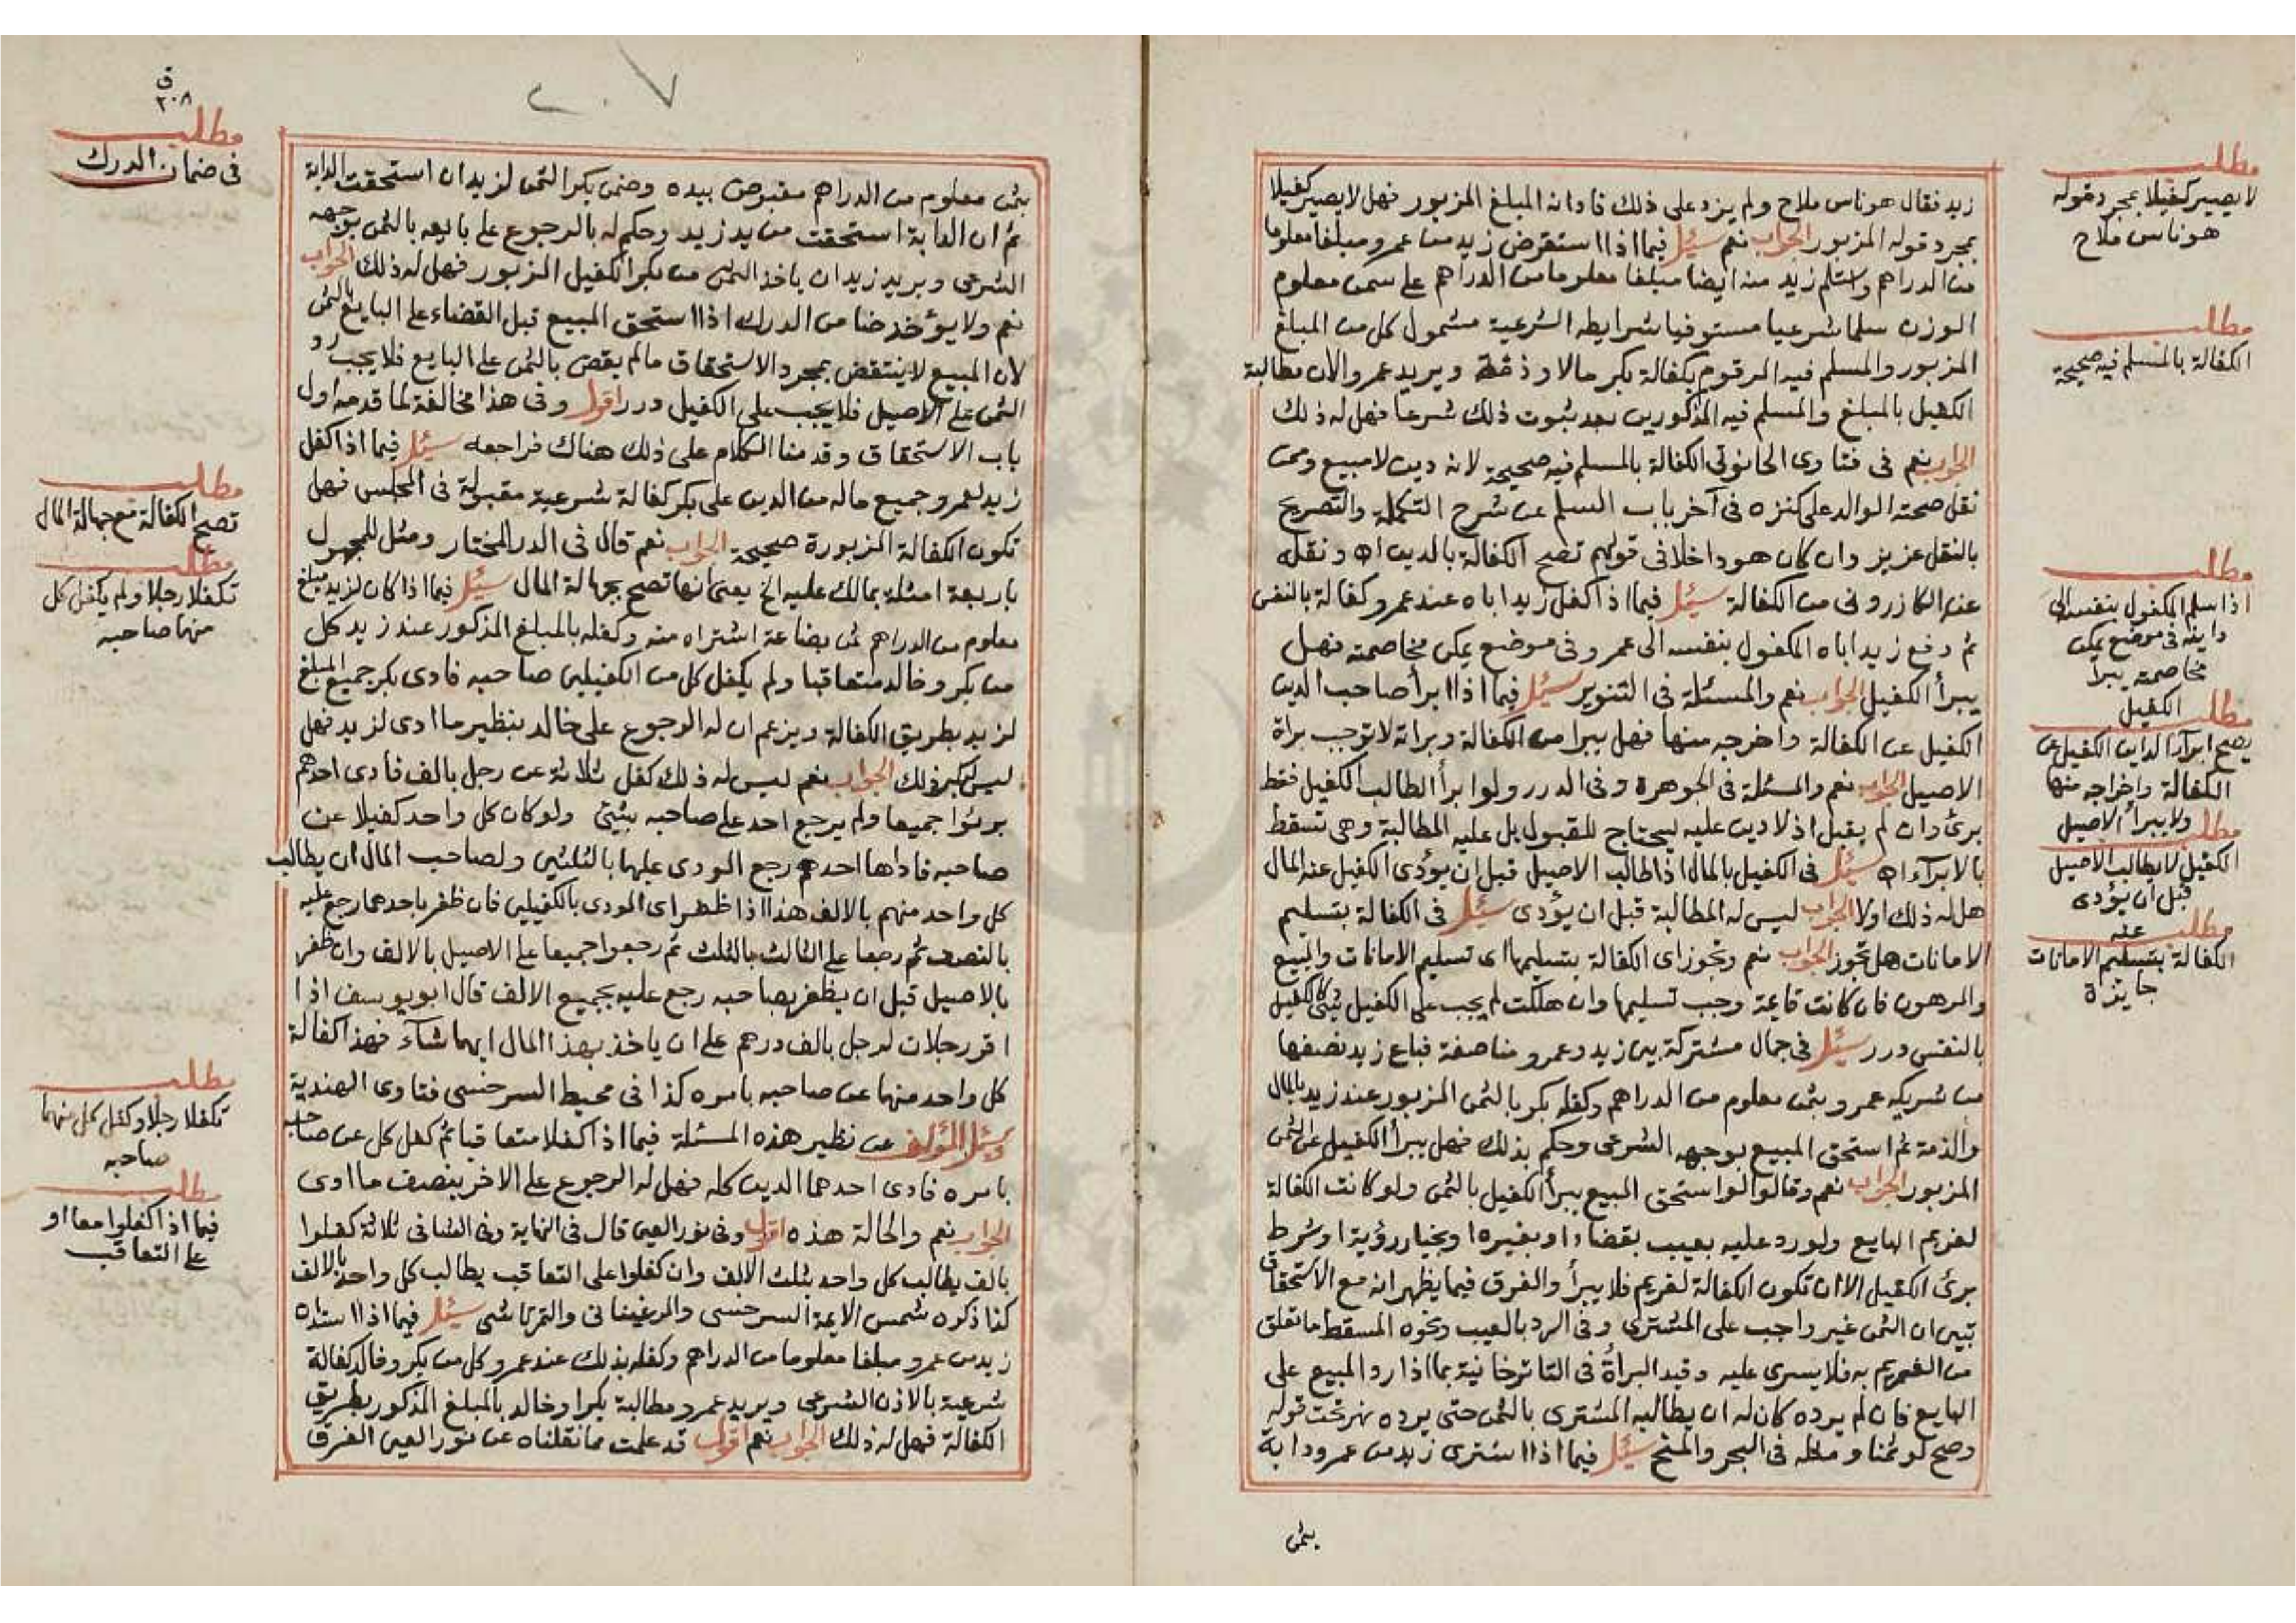 زيد فقال هو ناس ملاح ولم يزد على ذلك فادانه المبلغ المزبور فهل لا يصير كفيلا
بمجرد قوله المزبور الجواب نعم سئل فيما اذا استقرض زيد من عمرو مبلغا معلوما
من الدراهم واستلم زيد منه ايضا مبلغا معلوما من الدراهم على سمن معلوم
الوزن سلما شرعيا مستوفيا شرايطه الشرعية مشمول كل من المبلغ
المزبور والمسلم فيه المرقوم بكفالة بكر مالا وذمة ويريد عمرو الان مطالبة
الكفيل بالمبلغ والمسلم فيه المذكورين بعد ثبوت ذلك شرعا فهل له ذلك
الجواب نعم في فتاوى الحانوتي الكفالة بالمسلم فيه صحيحة لانه دين لا مبيع وممن
نقل صحته الوالد على كنزه في آخر باب السلم عن شرح التكملة والتصريح
بالنقل عزيز وان كان هو داخلا في قولهم تصح الكفالة بالدين اه ونقله
عنه الكازروني من الكفالة سئل فيما اذا كفل زيد اباه عند عمرو كفالة بالنفس
ثم دفع زيد اباه المكفول بنفسه الى عمرو في موضع يمكن مخاصمته فهل
يبرأ الكفيل الجواب نعم والمسئلة في التنوير سئل فيما اذا ابرأ صاحب الدين
الكفيل عن الكفالة واخرجه منها فهل يبرا من الكفالة وبراته لا توجب براة
الاصيل الجواب نعم والمسئلة في الجوهرة وفي الدرر ولو ابرأ الطالب الكفيل فقط
برئ وان لم يقبل اذ لا دين عليه ليحتاج للقبول بل عليه المطالبة وهي تسقط
بالابرآء اه سئل في الكفيل بالمال اذا طالب الاصيل قبل ان يؤدى الكفيل عنه المال
هل له ذلك اولا الجواب ليس له المطالبة قبل ان يؤدى سئل في الكفالة بتسليم
الامانات هل تجوز الجواب نعم وتجوز اى الكفالة بتسليمها اى تسليم الامانات والمبيع
والمرهون فان كانت قائمة وجب تسليمها وان هلكت لم يجب على الكفيل شئ كالكفيل
بالنفس درر سئل في جمال مشتركة بين زيد وعمرو مناصفة فباع زيد نصفها
من شريكه عمرو بثمن معلوم من الدراهم وكفله بكر بالثمن المزبور عند زيد بالمال
والذمة ثم استحق المبيع بوجهه الشرعى وحكم بذلك فهل يبرأ الكفيل عن الثمن
المزبور الجواب نعم وقالوا لو استحق المبيع يبرأ الكفيل بالثمن ولو كانت الكفالة
لغريم البايع ولو رد عليه بعيب بقضاء او بغيره او بخيار رؤية او شرط
برئ الكفيل الا ان تكون الكفالة لغريم فلا يبرأ والفرق فيما يظهر انه مع الاستحقاق
تبين ان الثمن غير واجب على المشترى وفي الرد بالعيب ونحوه المسقط ما تعلق
من الغريم به فلا يسرى عليه وقيد البرأة في التاترخانية بما اذا رد المبيع على
البايع فان لم يرده كان له ان يطالبه المشترى بالثمن حتى يرده نهر تحت قوله
وصح لو ثمنا ومثله في البحر والمنح سئل فيما اذا اشترى زيد من عمرو دابة
بثمن
مطلب
لا يصير كفيلا بمجرد قوله
هو ناس ملاح
مطلب
الكفالة بالمسلم فيه صحيحة
مطلب
اذا سلم المكفول بنفسه الى
داينه في موضع يمكن
مخاصمته يبرأ
الكفيل
مطلب
يصح ابرآء الداين الكفيل عن
الكفالة واخراجه منها
ولا يبرأ الاصيل
مطلب
الكفيل لا يطالب الاصيل
قبل ان يؤدى
عنه
مطلب
الكفالة بتسليم الامانات
جايزة
٢٠٧
ق
٢٠٨
بثمن معلوم من الدراهم مقبوض بيده وضمن بكر الثمن لزيد ان استحقت الدابة
ثم ان الدابة استحقت من يد زيد وحكم له بالرجوع على بايعه بالثمن بوجهه
الشرعى ويريد زيد ان ياخذ الثمن من بكر الكفيل المزبور فهل له ذلك الجواب
نعم ولا يؤخذ ضامن الدرك اذا استحق المبيع قبل القضاء على البايع بالثمن
لان المبيع لا ينتقض بمجرد الاستحقاق مالم يقض بالثمن على البايع فلا يجب رد
الثمن على الاصيل فلا يجب على الكفيل درر اقول وفي هذا مخالفة لما قدمه اول
باب الاستحقاق وقدمنا الكلام على ذلك هناك فراجعه سئل فيما اذا كفل
زيد لعمرو جميع ماله من الدين على بكر كفالة شرعية مقبولة في المجلس فهل
تكون الكفالة المزبورة صحيحة الجواب نعم قال في الدر المختار ومثل للمجهول
باربعة امثلة بمالك عليه الخ يعنى انها تصح بجهالة المال سئل فيما اذا كان لزيد مبلغ
معلوم من الدراهم ثمن بضاعة اشتراه منه وكفله بالمبلغ المذكور عند زيد كل
من بكر وخالد متعاقبا ولم يكفل كل من الكفيلين صاحبه فادى بكر جميع المبلغ
لزيد بطريق الكفالة ويزعم ان له الرجوع على خالد بنظير ما ادى لزيد فهل
ليس لبكر ذلك الجواب نعم ليس له ذلك كفل ثلاثة عن رجل بالف فادى احدهم
برئوا جميعا ولم يرجع احد على صاحبه بشئ ولو كان كل واحد كفيلا عن
صاحبه فاداها احدهم رجع المودى عليهما بالثلثين ولصاحب المال ان يطالب
كل واحد منهم بالالف هذا اذا ظهر اى المودى بالكفيلين فان ظفر باحدهما رجع عليه
بالنصف ثم رجعا على الثالث بالثلث ثم رجعوا جميعا على الاصيل بالالف وان ظفر
بالاصيل قبل ان يظفر بصاحبه رجع عليه بجميع الالف قال ابو يوسف اذا
اقر رجلان لرجل بالف درهم على ان ياخذ بهذا المال ايهما شآء فهذا كفالة
كل واحد منهما عن صاحبه بامره كذا في محيط السرخسى فتاوى الهندية
وسئل المؤلف عن نظير هذه المسئلة فيما اذا كفلا متعاقبا ثم كفل كل عن صاحبه
بامره فادى احدهما الدين كله فهل له الرجوع على الاخر بنصف ما ادى
الجواب نعم والحالة هذه اقول وفي نور العين قال في النهاية وفي الشافى ثلاثة كفلوا
بالف يطالب كل واحد بثلث الالف وان كفلوا على التعاقب يطالب كل واحد بالالف
كذا ذكره شمس الايمة السرخسى والمرغينانى والتمرتاشى سئل فيما اذا استدان
زيد من عمرو مبلغا معلوما من الدراهم وكفله بذلك عند عمرو كل من بكر وخالد كفالة
شرعية بالاذن الشرعى ويريد عمرو مطالبة بكر او خالد بالمبلغ المذكور بطريق
الكفالة فهل له ذلك الجواب نعم اقول قد علمت مما نقلناه عن نور العين الفرق
مطلب
في ضمان الدرك
مطلب
تصح الكفالة مع جهالة المال
مطلب
تكفلا رجلا ولم يكفل كل
منهما صاحبه
مطلب
تكفلا رجلا وكفل كل منهما
صاحبه
مطلب
فيما اذا كفلوا معا او
على التعاقب